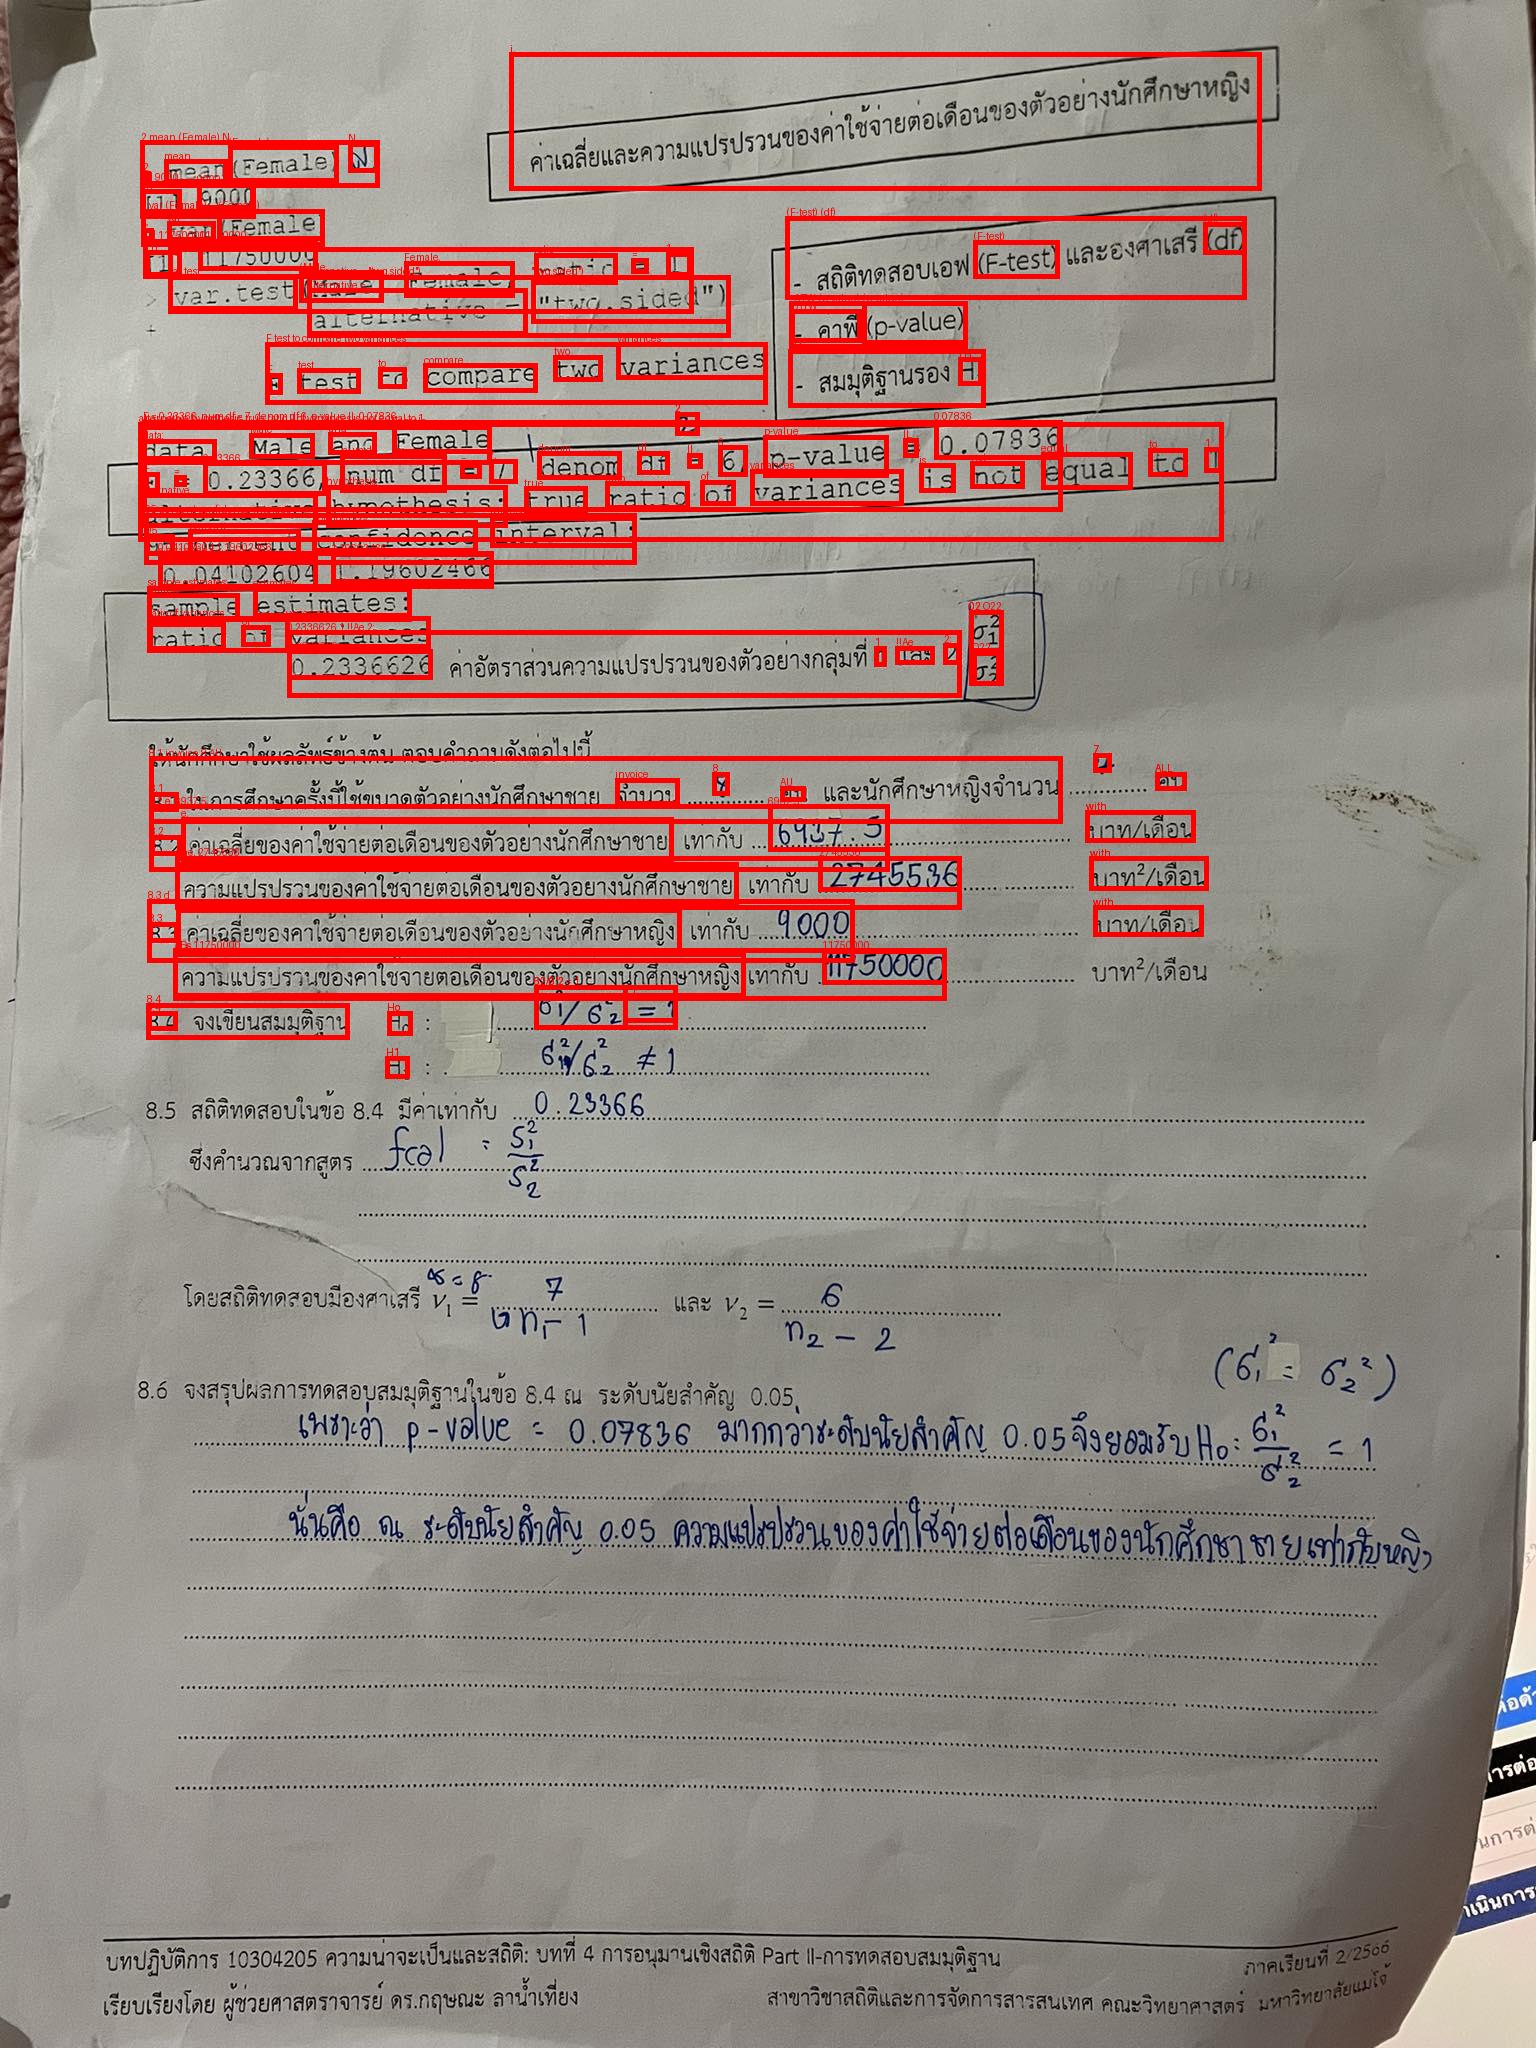 ค่าเฉลี่ยและความแปรปรวนของค่าใช้จ่ายต่อเดือนของตัวอย่างนักศึกษาหญิง
mean(Female)
[1] 9000
var(Female)
[1] 11750000
> var.test(Male, Female, ratio = 1,
+ alternative = "two.sided")
- สถิติทดสอบเอฟ (F-test) และองศาเสรี (df)
- ค่าพี (p-value)
- สมมุติฐานรอง H
F test to compare two variances
data: Male and Female
F = 0.23366, num df = 7, denom df = 6, p-value = 0.07836
alternative hypothesis: true ratio of variances is not equal to 1
percent confidence interval:
0.04102604 1.19602466
sample estimates:
ratio of variances
0.2336626 ค่าอัตราส่วนความแปรปรวนของตัวอย่างกลุ่มที่ 1 และ 2 σ₁² σ₂²
ให้นักศึกษาใช้ผลลัพธ์ข้างต้น ตอบคำถามดังต่อไปนี้
8.1 ในการศึกษาครั้งนี้ใช้ขนาดตัวอย่างนักศึกษาชาย จำนวน 8 คน และนักศึกษาหญิงจำนวน 7 คน
8.2 ค่าเฉลี่ยของค่าใช้จ่ายต่อเดือนของตัวอย่างนักศึกษาชาย เท่ากับ 6937.5 บาท/เดือน
ความแปรปรวนของค่าใช้จ่ายต่อเดือนของตัวอย่างนักศึกษาชาย เท่ากับ 2745536 บาท²/เดือน
8.3 ค่าเฉลี่ยของค่าใช้จ่ายต่อเดือนของตัวอย่างนักศึกษาหญิง เท่ากับ 9000 บาท/เดือน
ความแปรปรวนของค่าใช้จ่ายต่อเดือนของตัวอย่างนักศึกษาหญิง เท่ากับ 11750000 บาท²/เดือน
8.4 จงเขียนสมมุติฐาน H₀ : σ₁²/σ₂² = 1
H₁ : σ₁²/σ₂² ≠ 1
8.5 สถิติทดสอบในข้อ 8.4 มีค่าเท่ากับ 0.23366
ซึ่งคำนวณจากสูตร fcal = S₁²/S₂²
โดยสถิติทดสอบมีองศาเสรี ν₁ = 7 และ ν₂ = 6
n₁ - 1 n₂ - 2
(σ₁² = σ₂²)
8.6 จงสรุปผลการทดสอบสมมุติฐานในข้อ 8.4 ณ ระดับนัยสำคัญ 0.05
เพราะว่า p-value = 0.07836 มากกว่าระดับนัยสำคัญ 0.05 จึงยอมรับ H₀: σ₁²/σ₂² = 1
นั่นคือ ณ ระดับนัยสำคัญ 0.05 ความแปรปรวนของค่าใช้จ่ายต่อเดือนของนักศึกษาชายเท่ากับหญิง
บทปฏิบัติการ 10304205 ความน่าจะเป็นและสถิติ: บทที่ 4 การอนุมานเชิงสถิติ Part II-การทดสอบสมมุติฐาน ภาคเรียนที่ 2/2566
เรียบเรียงโดย ผู้ช่วยศาสตราจารย์ ดร.กฤษณะ ลาน้ำเที่ยง สาขาวิชาสถิติและการจัดการสารสนเทศ คณะวิทยาศาสตร์ มหาวิทยาลัยแม่โจ้